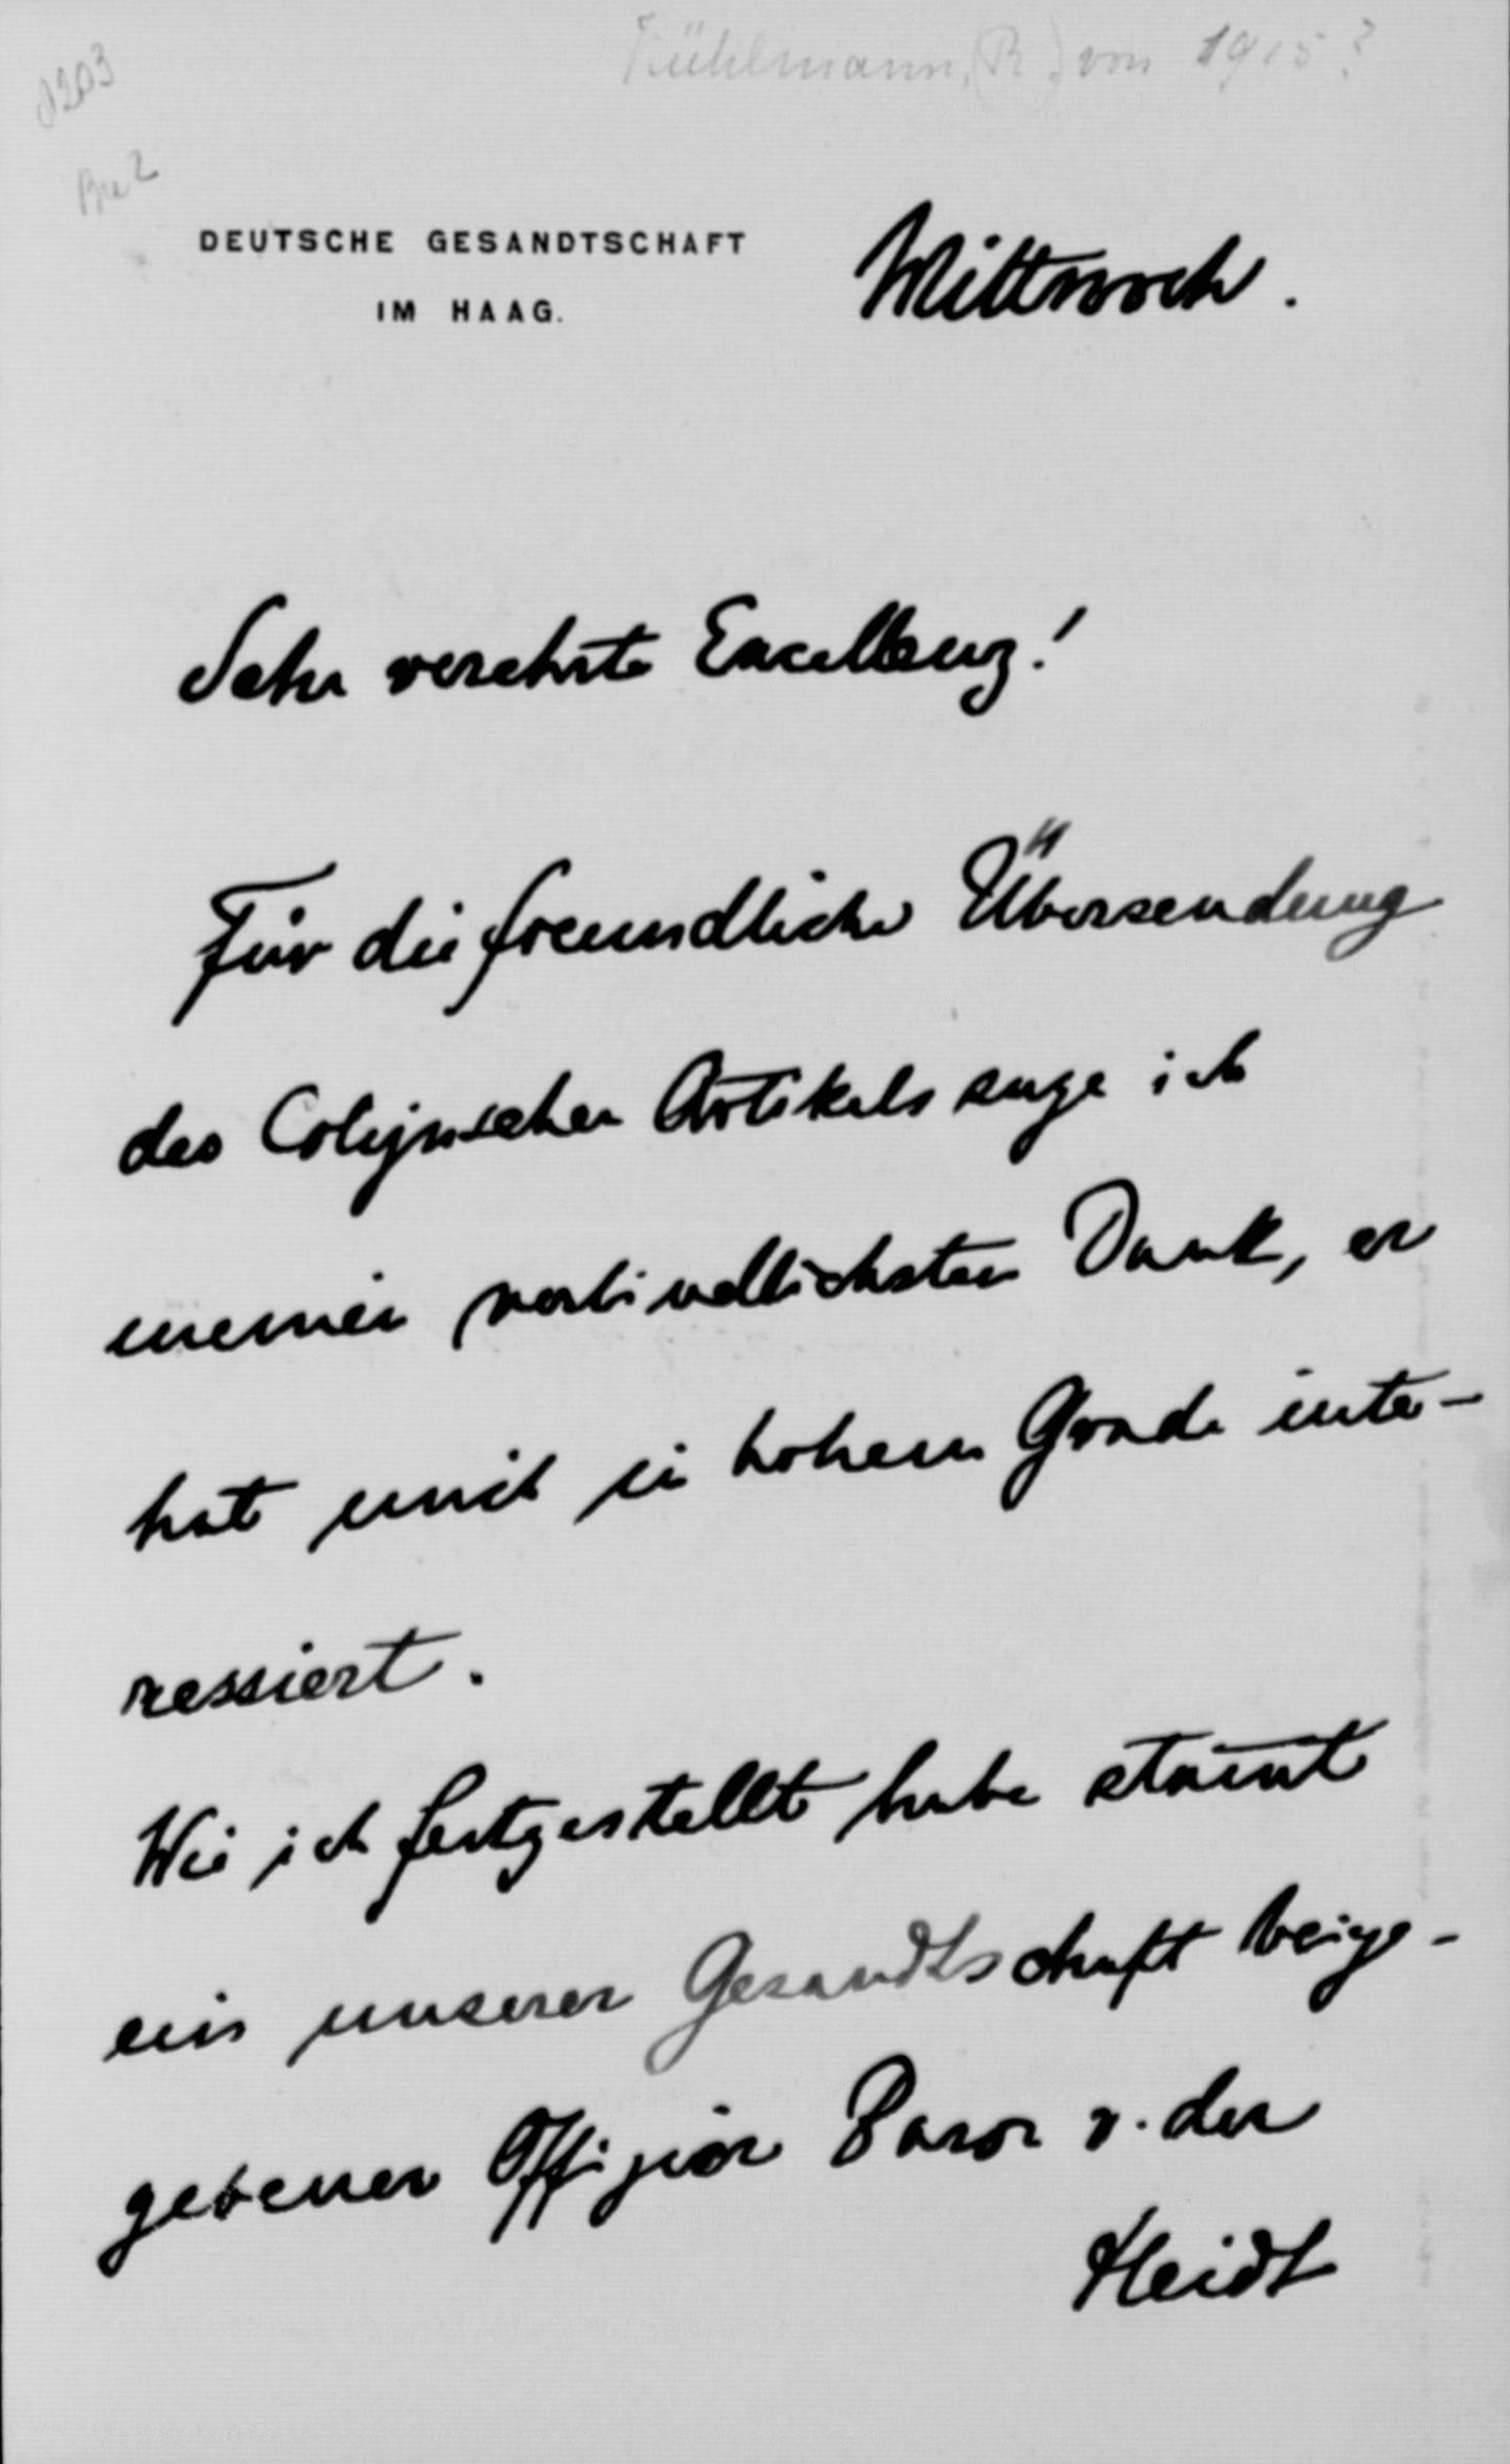 Kühlmann, (R.) von 1915?
DEUTSCHE GESANDTSCHAFT
IM HAAG.
Mittwoch.
Sehr verehrte Excellenz!
Für die freundliche Übersendung
des Colijnschen Artikels sage ich
meinen verbindlichsten Dank, er
hat mich in hohem Grade inte-
ressiert.
Wie ich festgestellt habe stam̅t
ein unserer Gesandtschaft beige-
gebener Offizier Baron v. der
Heidt